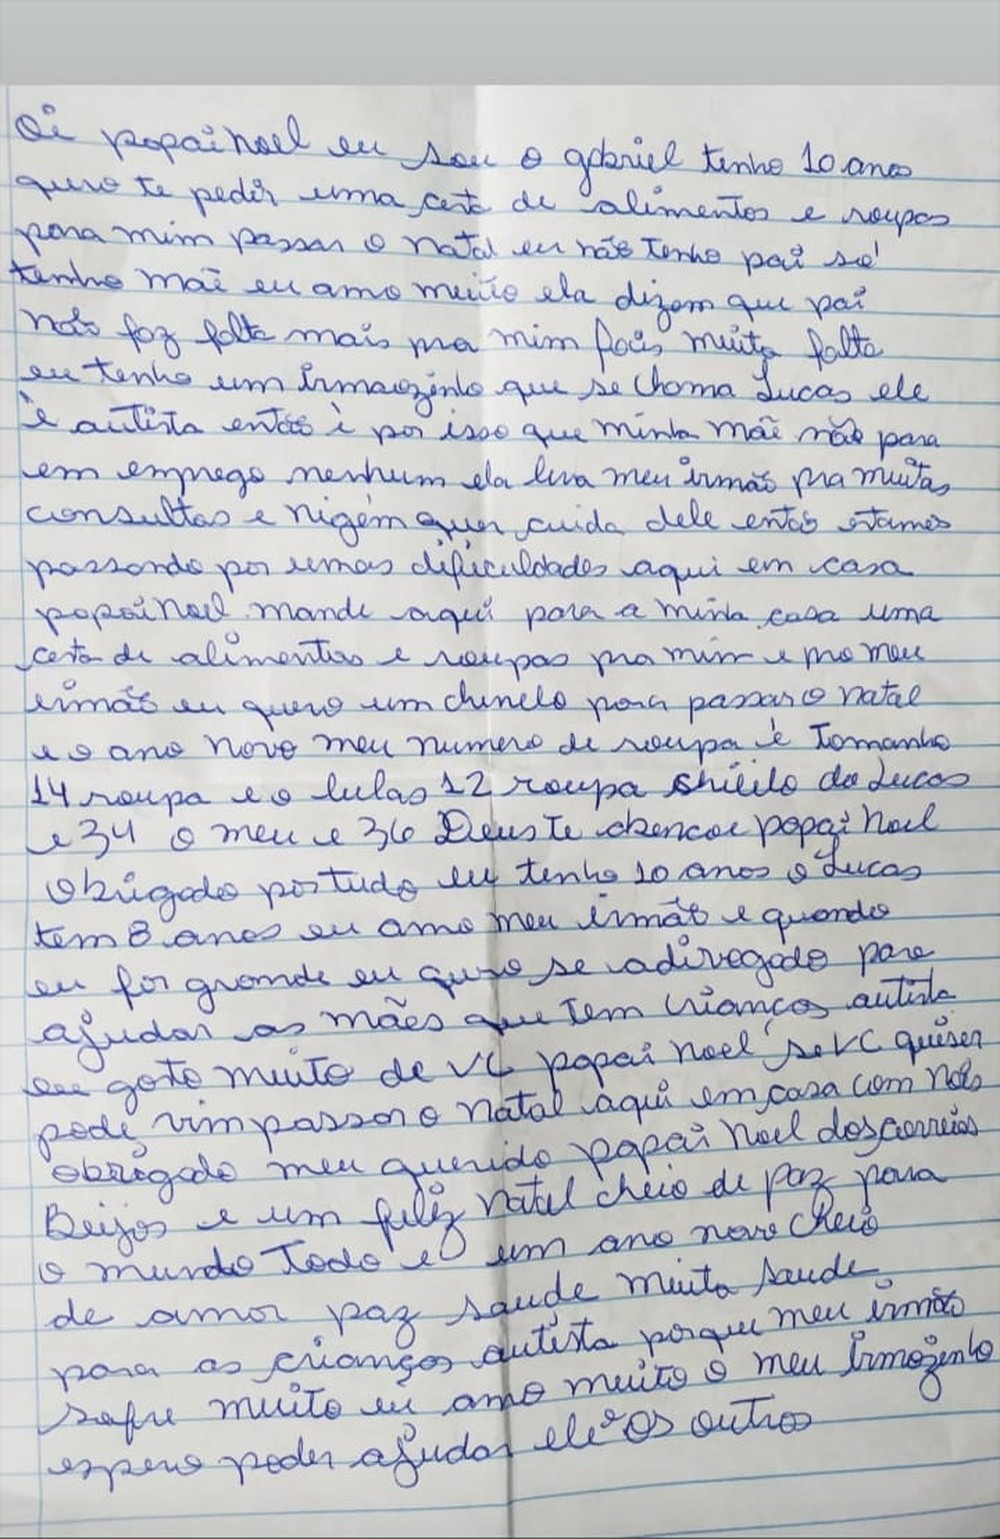 Oi papai Noel eu sou o gabriel tenho 10 anos
quro te pedir uma cesta de alimentos e roupas
para mim passar o natal eu não tenho pai só
tenho mãe eu amo muito ela dizem que pai
não faz falta mais pra mim fais muita falta
eu tenho um irmaozinho que se chama Lucas ele
é autista então é por isso que minha mãe não para
em emprego nenhum ela leva meu irmão pra muitas
consultas e nigém quer cuida dele então estamos
passando por umas dificuldades aqui em casa
papai Noel mande aqui para a minha casa uma
cesta de alimentos e roupas pra mim e pro meu
irmão eu quero um chinelo para passar o natal
e o ano novo meu numero de roupa é tamanho
14 roupa e o lulas 12 roupa do Lucas
e 34 o meu e 36 Deus te abencoe papai Noel
obrigado por tudo eu tenho 10 anos o Lucas
tem 8 anos eu amo meu irmão e quando
eu for grande eu quro se adivogado para
ajudar as mães que tem crianças autista
eu goto muito de VC papai Noel se VC quiser
pode vim passar o natal aqui em casa com nós
obrigado meu querido papai Noel dos correios
Beijos e um feliz natal cheio de paz para
o mundo todo e um ano novo cheio
de amor paz saude muita saude
para as crianças autista porque meu irmão
sofre muito eu amo muito o meu irmozinho
espero poder ajudar ele e os outros